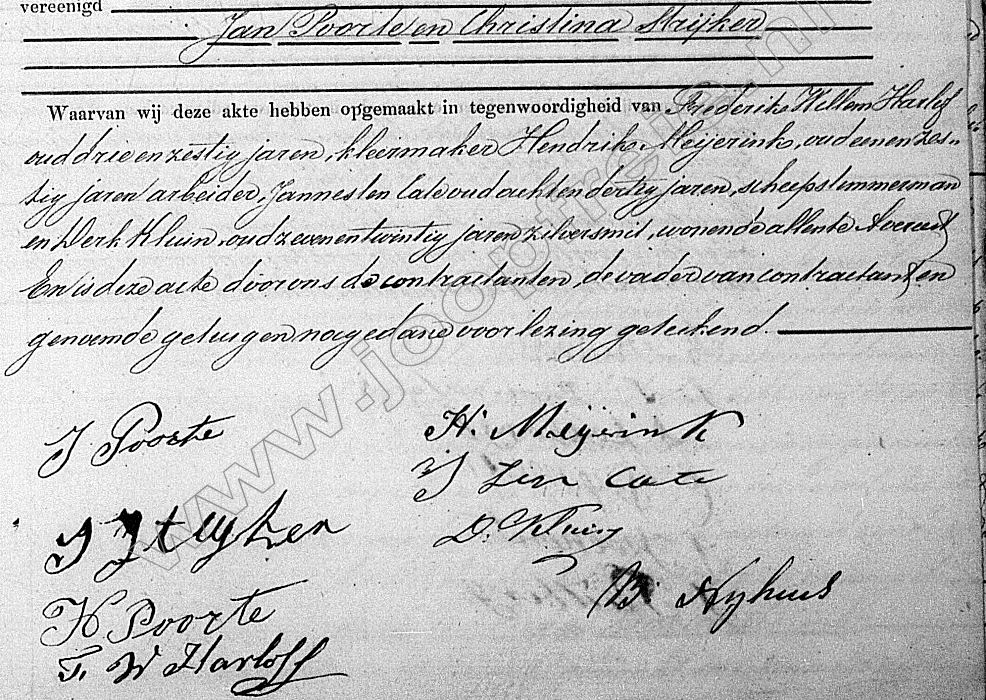 vereenigd
Jan Poorte en Christina Strijker
Waarvan wij deze akte hebben opgemaakt in tegenwoordigheid van Frederik Willem Harlof
oud drie en zestig jaren, kleermaker Hendrik Meijerink, oud een en zes-
tig jaren arbeider, Jannes ten Cate oud acht en dertig jaren, scheepstimmerman
en Derk Kluin, oud zeven en twintig jaren zilversmit, wonende allen te Avereest
En is deze acte door ons de contractanten, de vader van contractant en
genoemde getuigen na gedane voorlezing geteekend.
J Poorte
H. Meijerink
J ten Cate
Strijker
D. Kluin
B. Nyhuis
H Poorte
F. W Harloff
www.jooptrei.nl